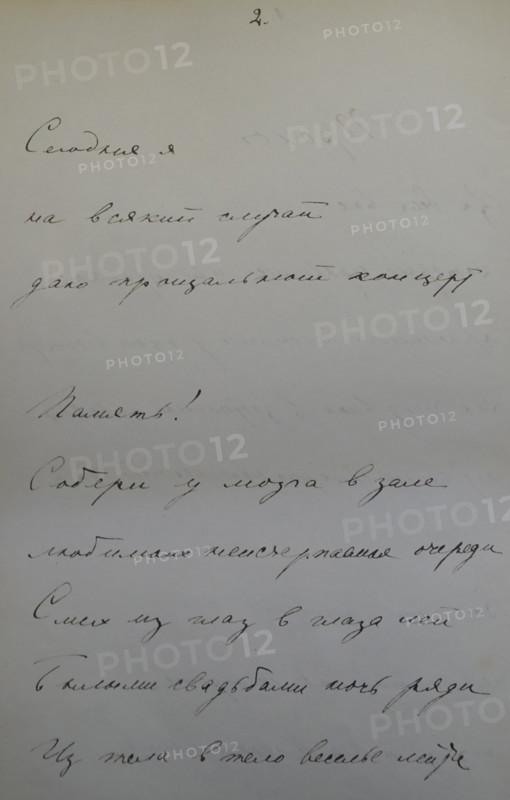 2.
Сегодня я
на всякий случай
даю прощальный концерт
Память!
Собери у мозга в зале
любимых неисчерпанная очереди
Смех из глаз в глаза лей
былыми свадьбами ночь ряди
Из тела в тело веселье лейте
PHOTO12